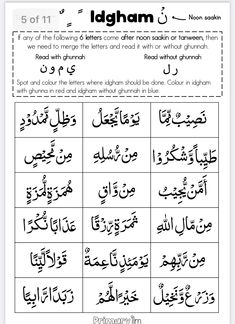 5 of 11
ً ٍ ٌ Idgham نْ ← Noon saakin
If any of the following 6 letters come after noon saakin or tanween, then
we need to merge the letters and read it with or without ghunnah.
Read with ghunnah Read without ghunnah
ي م و ن
ر ل
Spot and colour the letters where idgham should be done. Colour in idgham
with ghunna in red and idgham without ghunnah in blue.
وَظِلٍّ مَّمْدُوْدٍ
يَوْمًا يَّجْعَلُ
نَصِيْبٌ مِّمَّا
مِنْ مَّحِيْصٍ
مِنْ رُّسُلِهِ
طَيِّبًا وَّاشْكُرُوْا
هُمَزَةٍ لُّمَزَةٍ
مِنْ وَّاقٍ
أَمَّنْ يُّجِيْبُ
عَذَابًا نُّكْرًا
ثَمَرَةٍ رِّزْقًا
مِنْ مَّالِ اللهِ
قَوْلًا لَّيِّنًا
يَوْمَئِذٍ نَّاعِمَةٌ
مِنْ رَّبِّهِمْ
زَبَدًا رَّابِيًا
خَيْرًا لَّهُمْ
وَزَرْعٌ وَّنَخِيْلٌ